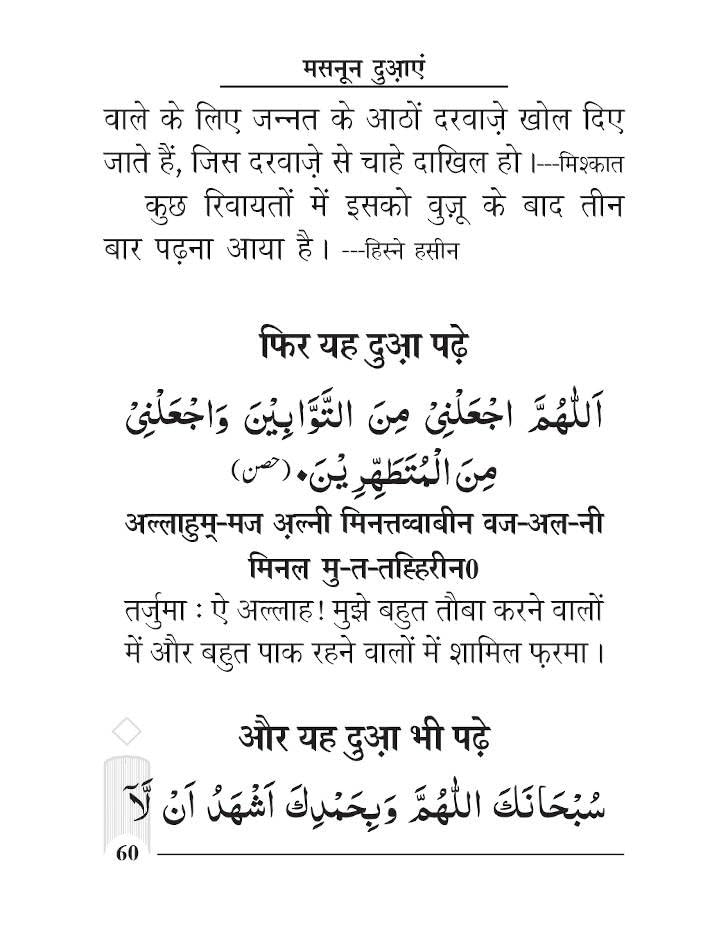 मसनून दुआ़एं
वाले के लिए जन्नत के आठों दरवाज़े खोल दिए
जाते हैं, जिस दरवाज़े से चाहे दाखिल हो।---मिश्कात
कुछ रिवायतों में इसको वुज़ू के बाद तीन
बार पढ़ना आया है। ---हिस्ने हसीन
फिर यह दुआ़ पढ़े
اَللّٰهُمَّ اجْعَلْنِىْ مِنَ التَّوَّابِيْنَ وَاجْعَلْنِىْ
مِنَ الْمُتَطَهِّرِيْنَ۰ (حصن)
अल्लाहुम्-मज अ़ल्नी मिनत्तव्वाबीन वज-अल-नी
मिनल मु-त-तह्हिरीन0
तर्जुमा : ऐ अल्लाह! मुझे बहुत तौबा करने वालों
में और बहुत पाक रहने वालों में शामिल फ़रमा।
और यह दुआ़ भी पढ़े
سُبْحَانَكَ اللّٰهُمَّ وَبِحَمْدِكَ اَشْهَدُ اَنْ لَّآ
60